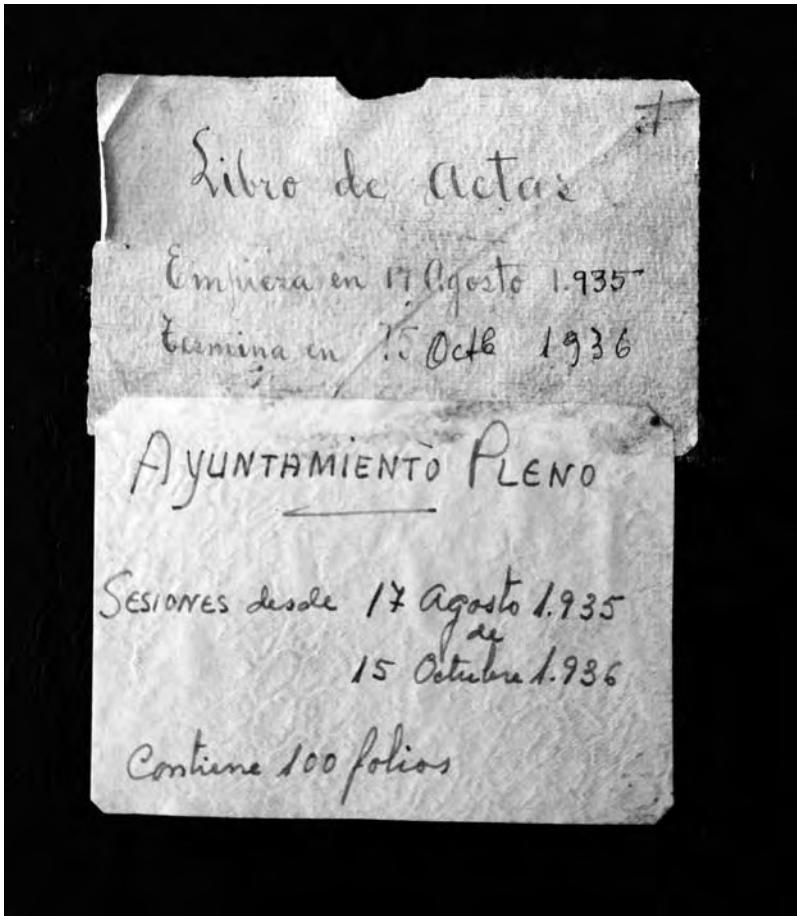 Libro de Actas
Empieza en 17 Agosto 1.935
Termina en 15 Octb 1936
AYUNTAMIENTO PLENO
SESIONES desde 17 Agosto 1.935
de
15 Octubre 1.936
Contiene 100 folios